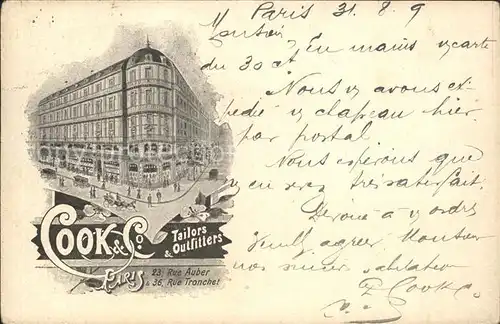 Paris 31. 8. 9
Monsieur
En mains v/carte
du 30 ct
Nous v/ avons ex-
pedié v/ chapeau hier
par postal.
Nous esperons que
v/ en serez très satisfait.
à v/ ordres
Veuill. agréer, Monsieur
nos
Cook & Co
COOK & Co
Tailors
& Outfitters
PARIS
23, Rue Auber
& 35, Rue Tronchet